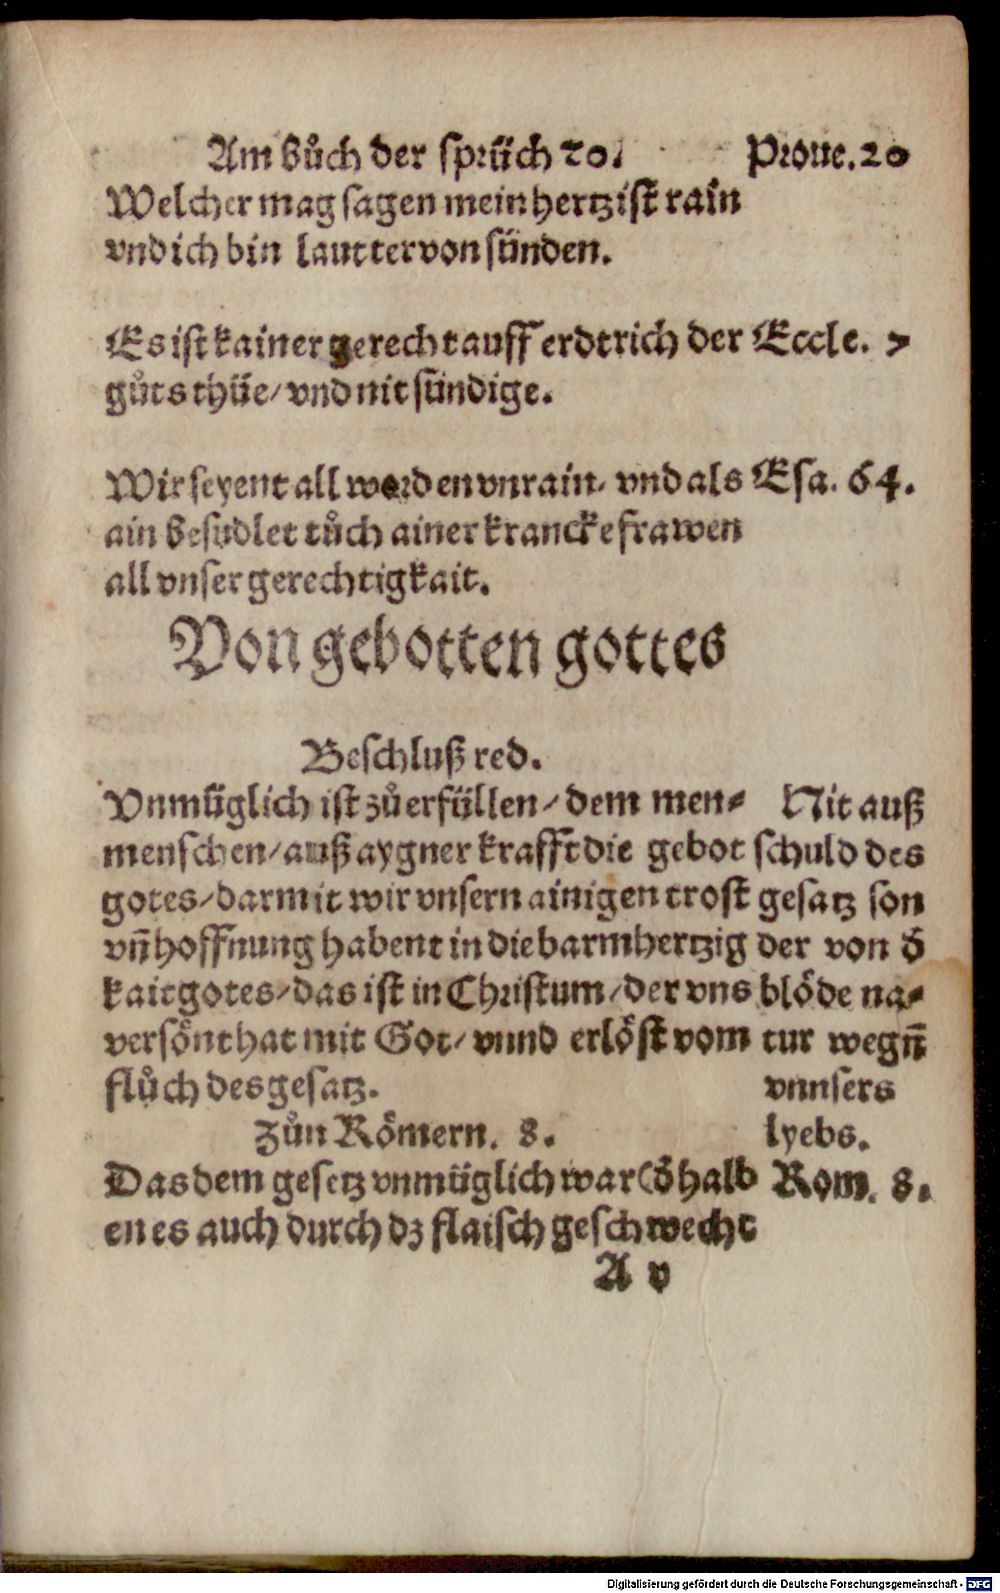 Am bůch der sprüch 20. Proue. 20
Welcher mag sagen mein hertz ist rain
vnd ich bin lautter von sünden.
Es ist kainer gerecht auff erdtrich der Eccle. 7
gůts thüe/ vnd nit sündige.
Wir seyent all worden vnrain/ vnd als Esa. 64.
ain besudlet tůch ainer krancke frawen
all vnser gerechtigkait.
Von gebotten gottes
Beschluß red.
Vnmüglich ist zů erfüllen/ dem men⸗ Nit auß
menschen/ auß aygner krafft die gebot schuld des
gotes/ darmit wir vnsern ainigen trost gesatz son
vñ hoffnung habent in die barmhertzig der von ð
kait gotes/ das ist in Christum/ der vns blöde na⸗
versönt hat mit Got/ vnnd erlöst vom tur wegñ
flůch des gesatz. vnnsers
Zůn Römern. 8. lyebs.
Das dem gesetz vnmüglich war (ð halb Rom. 8.
en es auch durch dz flaisch geschwecht
A v
Digitalisierung gefördert durch die Deutsche Forschungsgemeinschaft - DFG